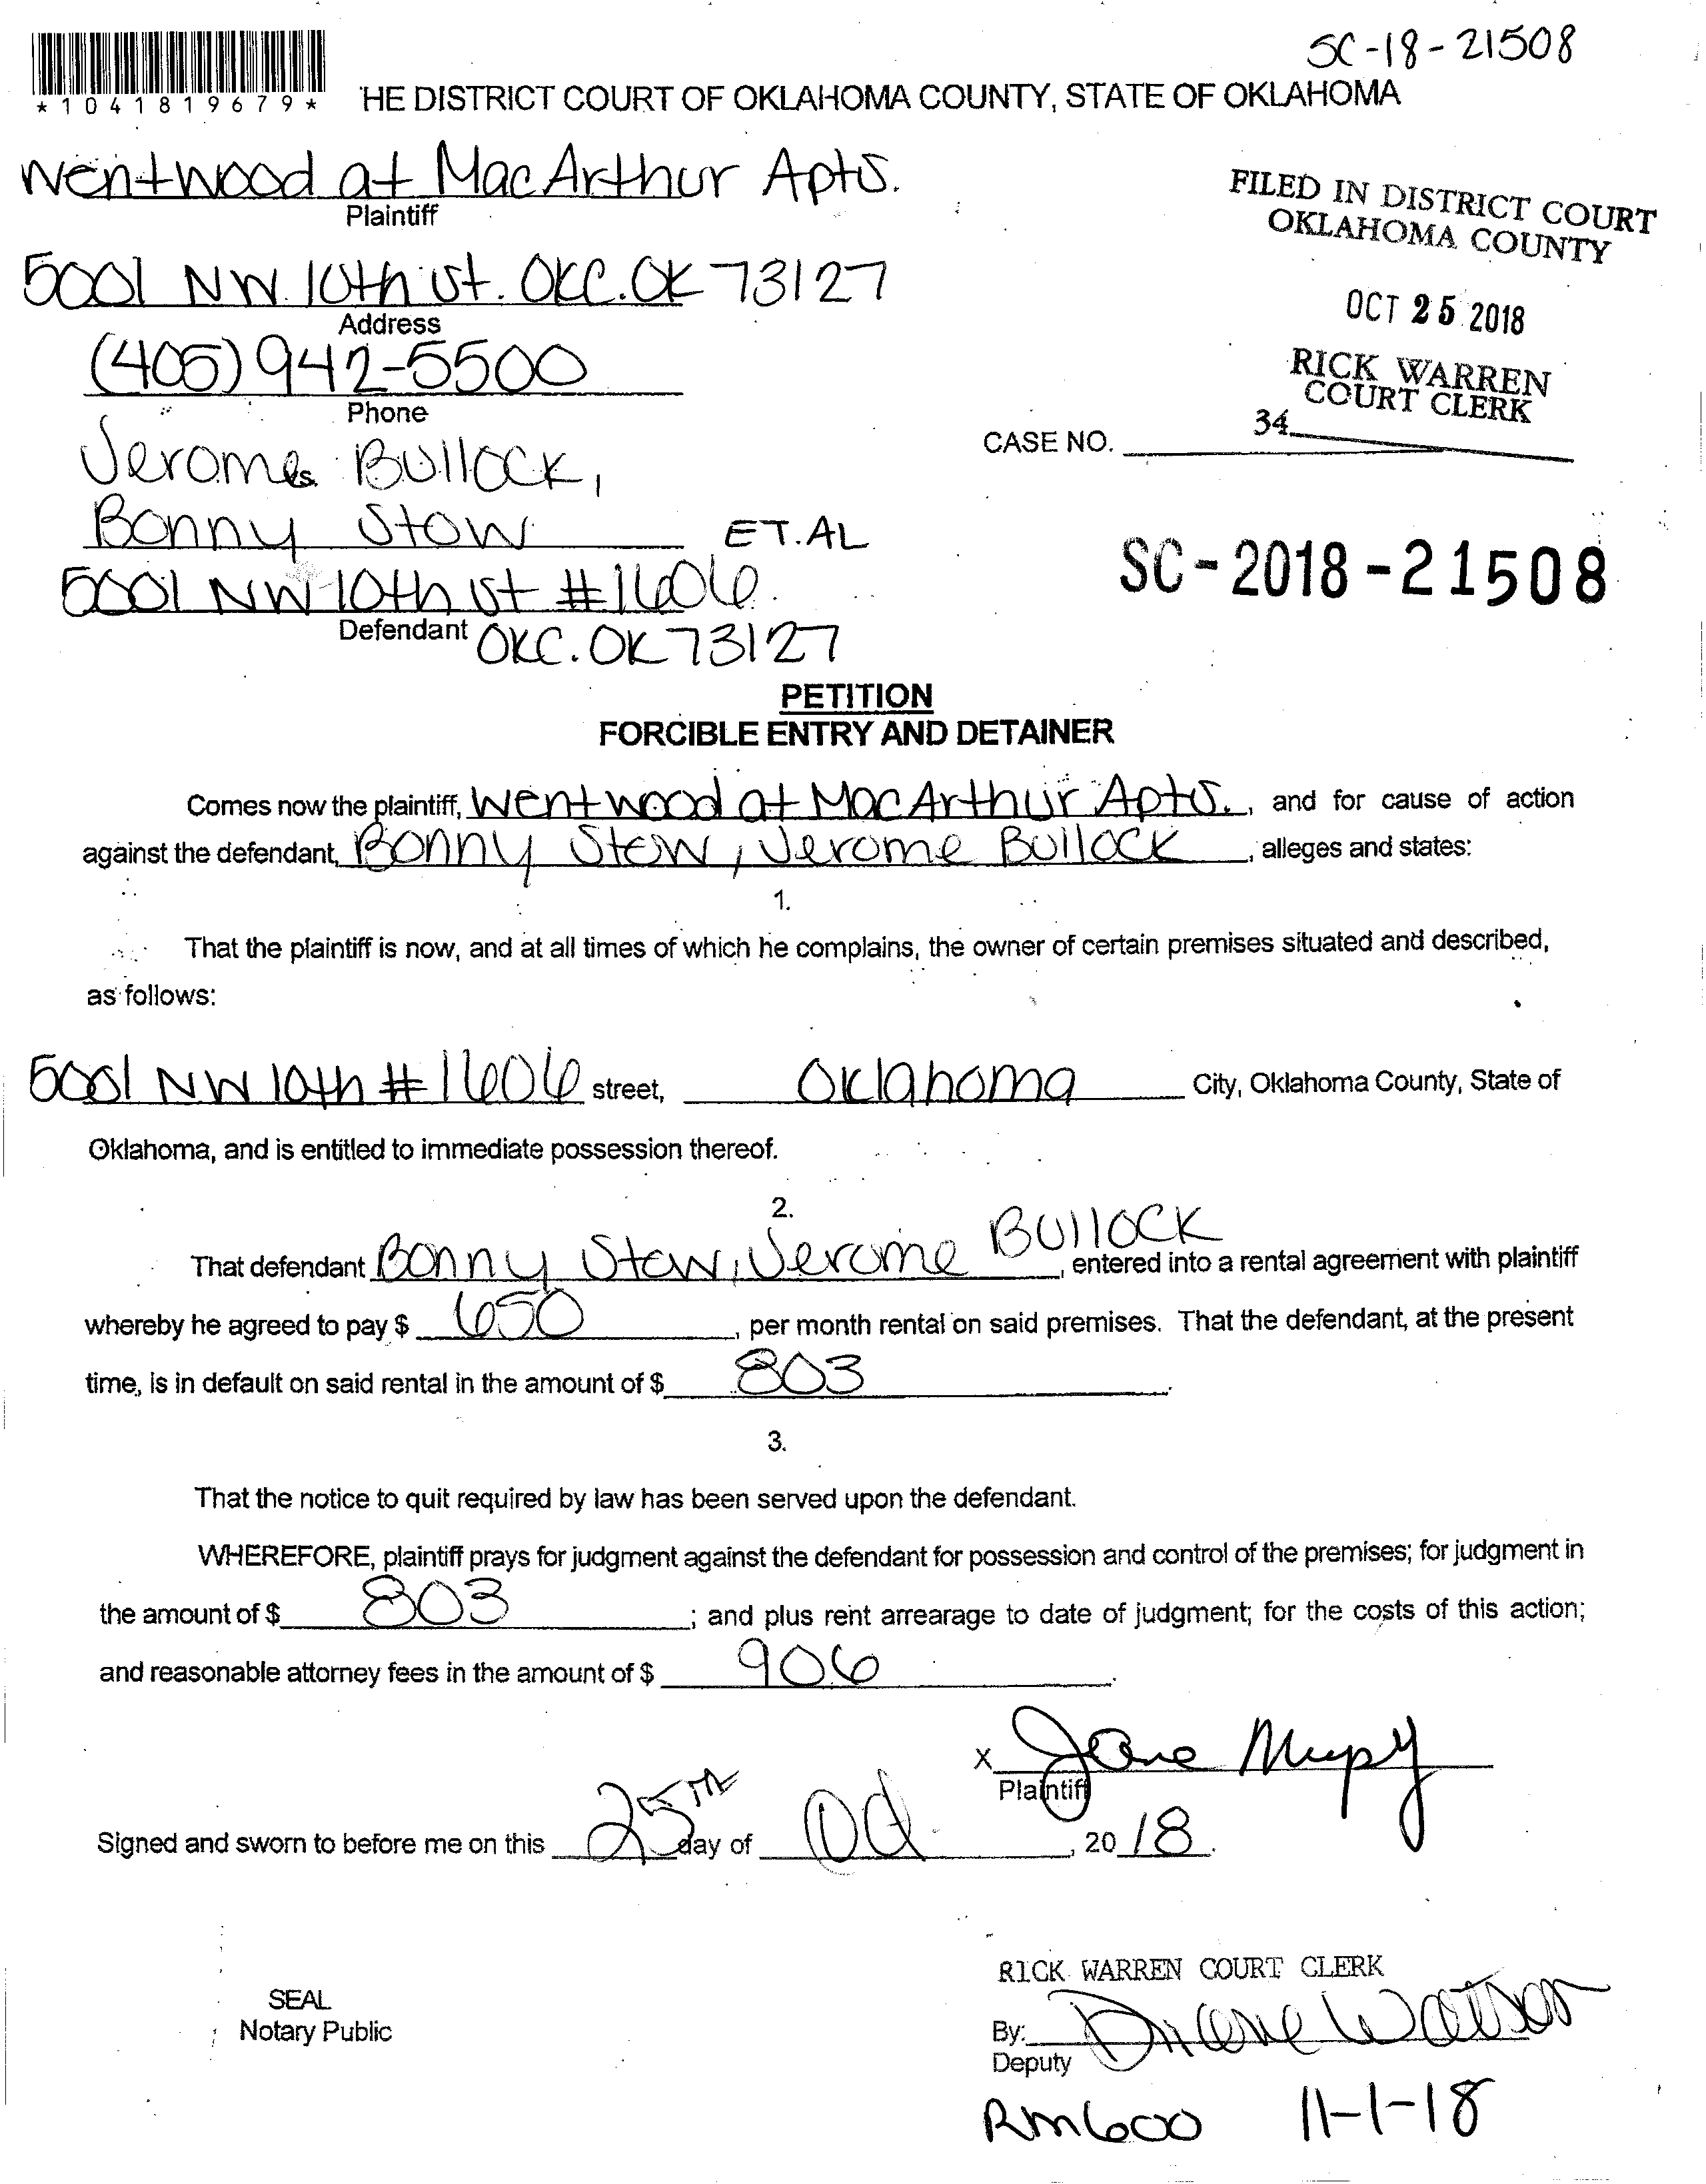 SC-18-21508
*1041819679*
HE DISTRICT COURT OF OKLAHOMA COUNTY, STATE OF OKLAHOMA
Wentwood at MacArthur Apts.
Plaintiff
FILED IN DISTRICT COURT
OKLAHOMA COUNTY
5001 NW 10th st. OKC. OK 73127
Address
OCT 25 2018
(405) 942-5500
Phone
RICK WARREN
COURT CLERK
34
CASE NO.
Jerome Bullock,
Bonny Stow ET.AL
5001 NW 10th st #1606
Defendant OKC. OK 73127
SC-2018-21508
PETITION
FORCIBLE ENTRY AND DETAINER
Comes now the plaintiff, Wentwood at MacArthur Apts., and for cause of action
against the defendant, Bonny Stow, Jerome Bullock, alleges and states:
1.
That the plaintiff is now, and at all times of which he complains, the owner of certain premises situated and described,
as follows:
5001 NW 10th #1606 street, Oklahoma City, Oklahoma County, State of
Oklahoma, and is entitled to immediate possession thereof.
2.
That defendant Bonny Stow, Jerome Bullock, entered into a rental agreement with plaintiff
whereby he agreed to pay $ 650, per month rental on said premises. That the defendant, at the present
time, is in default on said rental in the amount of $ 803.
3.
That the notice to quit required by law has been served upon the defendant.
WHEREFORE, plaintiff prays for judgment against the defendant for possession and control of the premises; for judgment in
the amount of $ 803; and plus rent arrearage to date of judgment; for the costs of this action;
and reasonable attorney fees in the amount of $ 906.
x Jane
Plaintiff
Signed and sworn to before me on this 25TH day of Oct, 2018.
RICK WARREN COURT CLERK
SEAL
Notary Public
By: Diane Watson
Deputy
Rm600 11-1-18